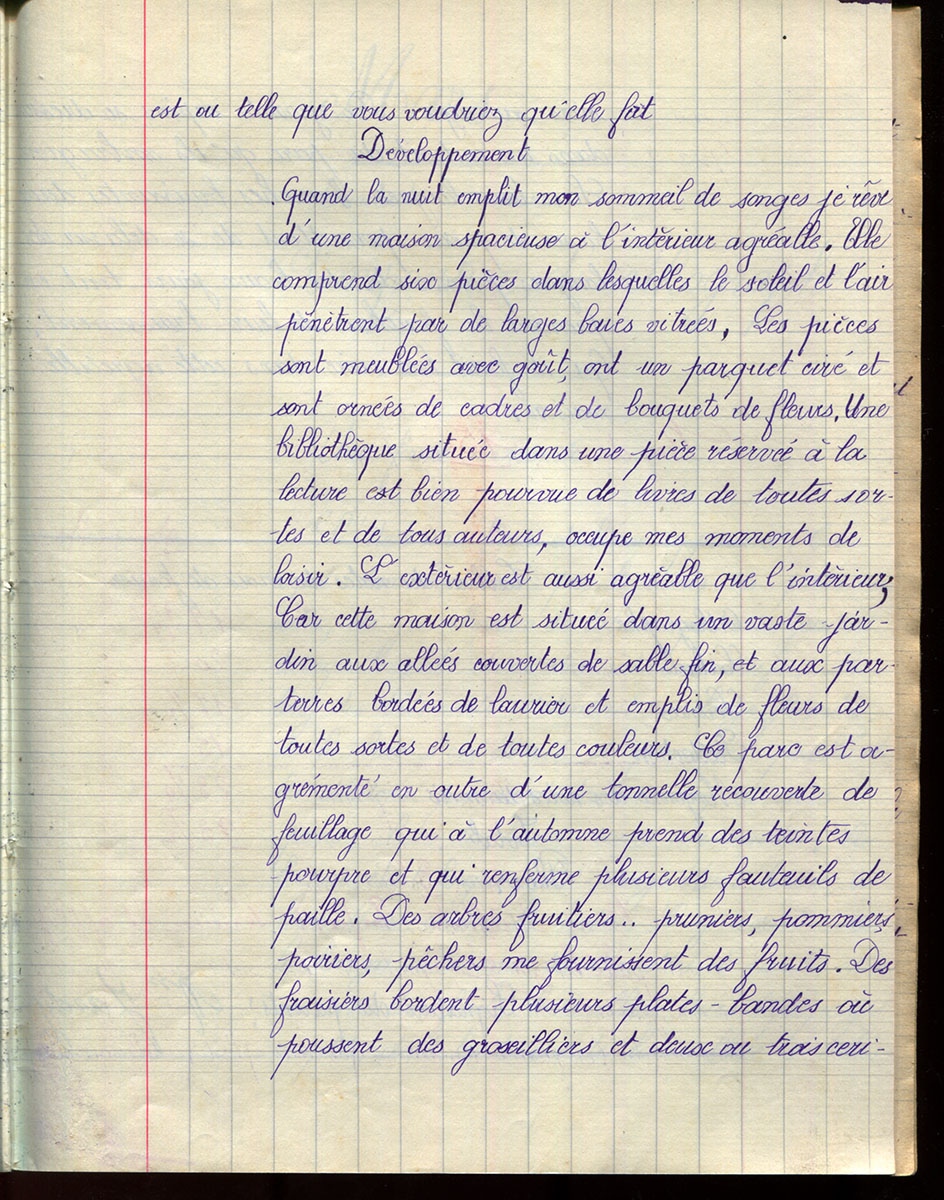 est ou telle que vous voudriez qu'elle fût
Développement
Quand la nuit emplit mon sommeil de songes je rêve
d'une maison spacieuse à l'intérieur agréable. Elle
comprend six pièces dans lesquelles le soleil et l'air
pénètrent par de larges baies vitrées, Les pièces
sont meublées avec goût, ont un parquet ciré et
sont ornées de cadres et de bouquets de fleurs. Une
bibliothèque située dans une pièce réservée à la
lecture est bien pourvue de livres de toutes sor-
tes et de tous auteurs, occupe mes moments de
loisir. L'extérieur est aussi agréable que l'intérieur,
Car cette maison est située dans un vaste jar-
din aux allées couvertes de sable fin, et aux par-
terres bordées de laurier et emplis de fleurs de
toutes sortes et de toutes couleurs. Ce parc est a-
grémenté en outre d'une tonnelle recouverte de
feuillage qui à l'automne prend des teintes
pourpre et qui renferme plusieurs fauteuils de
paille. Des arbres fruitiers.. pruniers, pommiers,
poiriers, pêchers me fournissent des fruits. Des
fraisiers bordent plusieurs plates-bandes où
poussent des groseilliers et deux ou trois ceri-